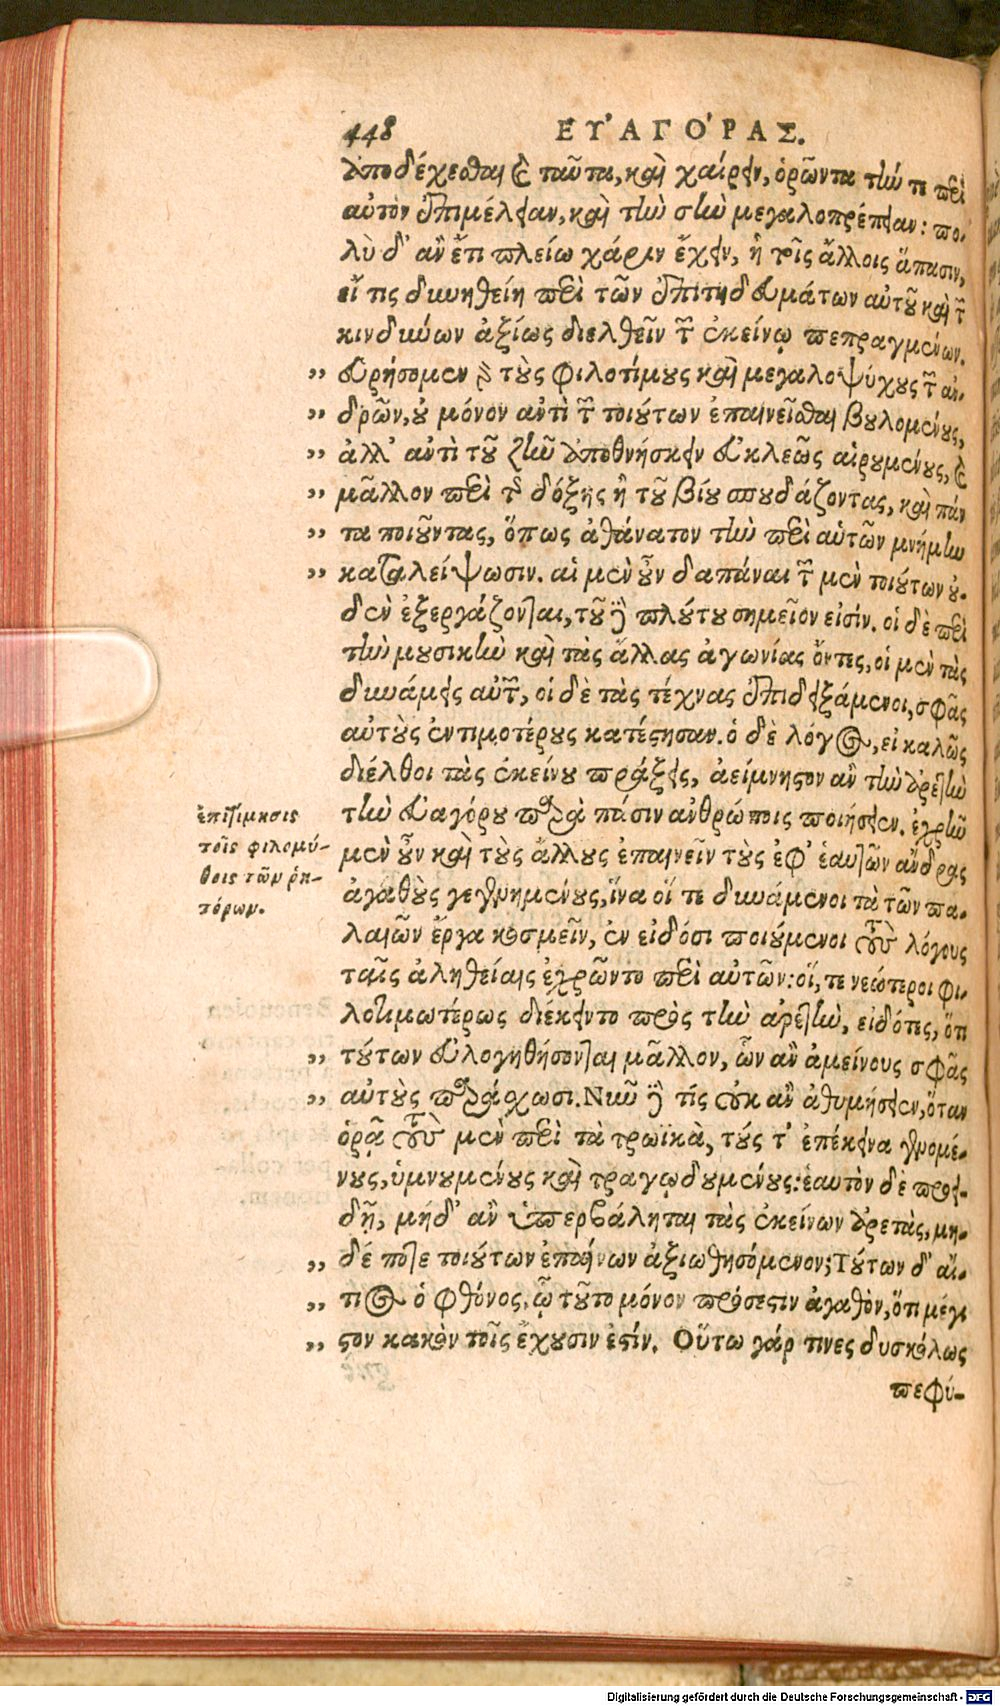 448 ΕΥ'ΑΓΟ'ΡΑΣ.
ἀποδέχεσθαι ϗ ταῦτα, καὶ χαίρειν, ὁρῶντα τήν τε περὶ
αὐτὸν ἐπιμέλειαν, καὶ τὴν σὴν μεγαλοπρέπειαν: πο-
λὺ δ' ἂν ἔτι πλείω χάριν ἔχειν, ἢ τοῖς ἄλλοις ἅπασιν,
εἴ τις δυνηθείη περὶ τῶν ἐπιτηδευμάτων αὐτοῦ καὶ τῶν
κινδύνων ἀξίως διελθεῖν τῶν ἐκείνῳ πεπραγμένων.
„ εὑρήσομεν γὰρ τοὺς φιλοτίμους καὶ μεγαλοψύχους τῶν ἀν-
„ δρῶν, οὐ μόνον ἀντὶ τῶν τοιούτων ἐπαινεῖσθαι βουλομένους,
„ ἀλλ' ἀντὶ τοῦ ζῆν ἀποθνήσκειν εὐκλεῶς αἱρουμένους, ϗ
„ μᾶλλον περὶ τῆς δόξης ἢ τοῦ βίου σπουδάζοντας, καὶ πάν
„ τα ποιοῦντας, ὅπως ἀθάνατον τὴν περὶ αὑτῶν μνήμην
„ καταλείψωσιν. αἱ μὲν οὖν δαπάναι τῶν μὲν τοιούτων οὐ-
δὲν ἐξεργάζονται, τοῦ δὲ πλούτου σημεῖον εἰσίν. οἱ δὲ περὶ
τὴν μουσικὴν καὶ τὰς ἄλλας ἀγωνίας ὄντες, οἱ μὲν τὰς
δυνάμεις αὑτῶν, οἱ δὲ τὰς τέχνας ἐπιδειξάμενοι, σφᾶς
αὐτοὺς ἐντιμοτέρους κατέστησαν. ὁ δὲ λόγος, εἰ καλῶς
διέλθοι τὰς ἐκείνου πράξεις, ἀείμνηστον ἂν τὴν ἀρετὴν
τὴν Εὐαγόρου παρὰ πᾶσιν ἀνθρώποις ποιήσειεν. ἐχρῆν
μὲν οὖν καὶ τοὺς ἄλλους ἐπαινεῖν τοὺς ἐφ' ἑαυτῶν ἄνδρας
ἀγαθοὺς γεγενημένους, ἵνα οἵ τε δυνάμενοι τὰ τῶν πα-
λαιῶν ἔργα κοσμεῖν, ἐν εἰδόσι ποιούμενοι τοὺς λόγους
ταῖς ἀληθείαις ἐχρῶντο περὶ αὐτῶν: οἵ, τε νεώτεροι φι-
λοτιμωτέρως διέκειντο πρὸς τὴν ἀρετὴν, εἰδότες, ὅτι
„ τούτων εὐλογηθήσονται μᾶλλον, ὧν ἂν ἀμείνους σφᾶς
„ αὐτοὺς παράσχωσι. Νῦν δὲ τίς οὐκ ἂν ἀθυμήσειεν, ὅταν
ὁρᾷ τοὺς μὲν περὶ τὰ τρωϊκὰ, τούς τ' ἐπέκεινα γενομέ-
νους, ὑμνουμένους καὶ τραγῳδουμένους: ἑαυτὸν δὲ προει-
δῇ, μήδ' ἂν ὑπερβάληται τὰς ἐκείνων ἀρετὰς, μη-
„ δέ ποτε τοιούτων ἐπαίνων ἀξιωθησόμενον; Τούτων δ' αἴ-
„ τιος ὁ φθόνος, ᾧ τοῦτο μόνον πρόσεστιν ἀγαθὸν, ὅτι μέγι
„ στον κακὸν τοῖς ἔχουσιν ἐστίν. Οὕτω γάρ τινες δυσκόλως
πεφύ-
ἐπιτίμησις
τοῖς φιλομύ-
θοις τῶν ῥη-
τόρων.
Digitalisierung gefördert durch die Deutsche Forschungsgemeinschaft - DFG